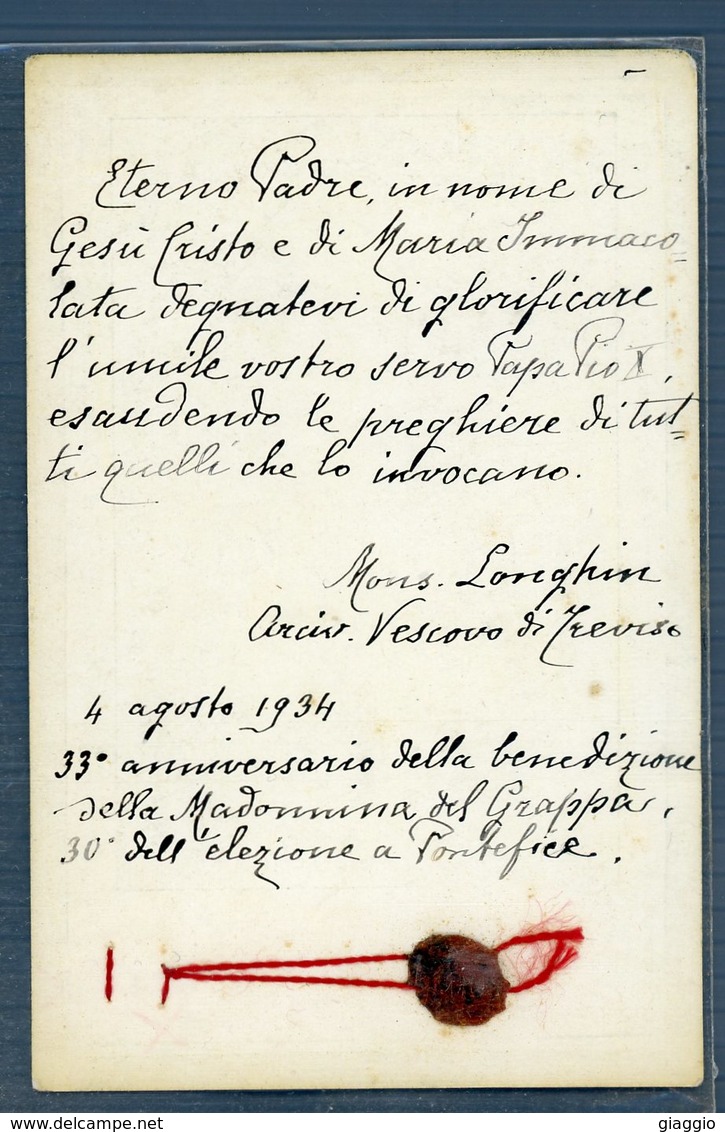 Eterno Padre, in nome di
Gesù Cristo e di Maria Immaco=
lata degnatevi di glorificare
l'umile vostro servo Papa Pio X,
esaudendo le preghiere di tut=
ti quelli che lo invocano.
Mons. Longhin
Arciv. Vescovo di Treviso
4 agosto 1934
33° anniversario della benedizione
della Madonnina del Grappa,
30° dell'elezione a Pontefice.
delcampe.net
giaggio